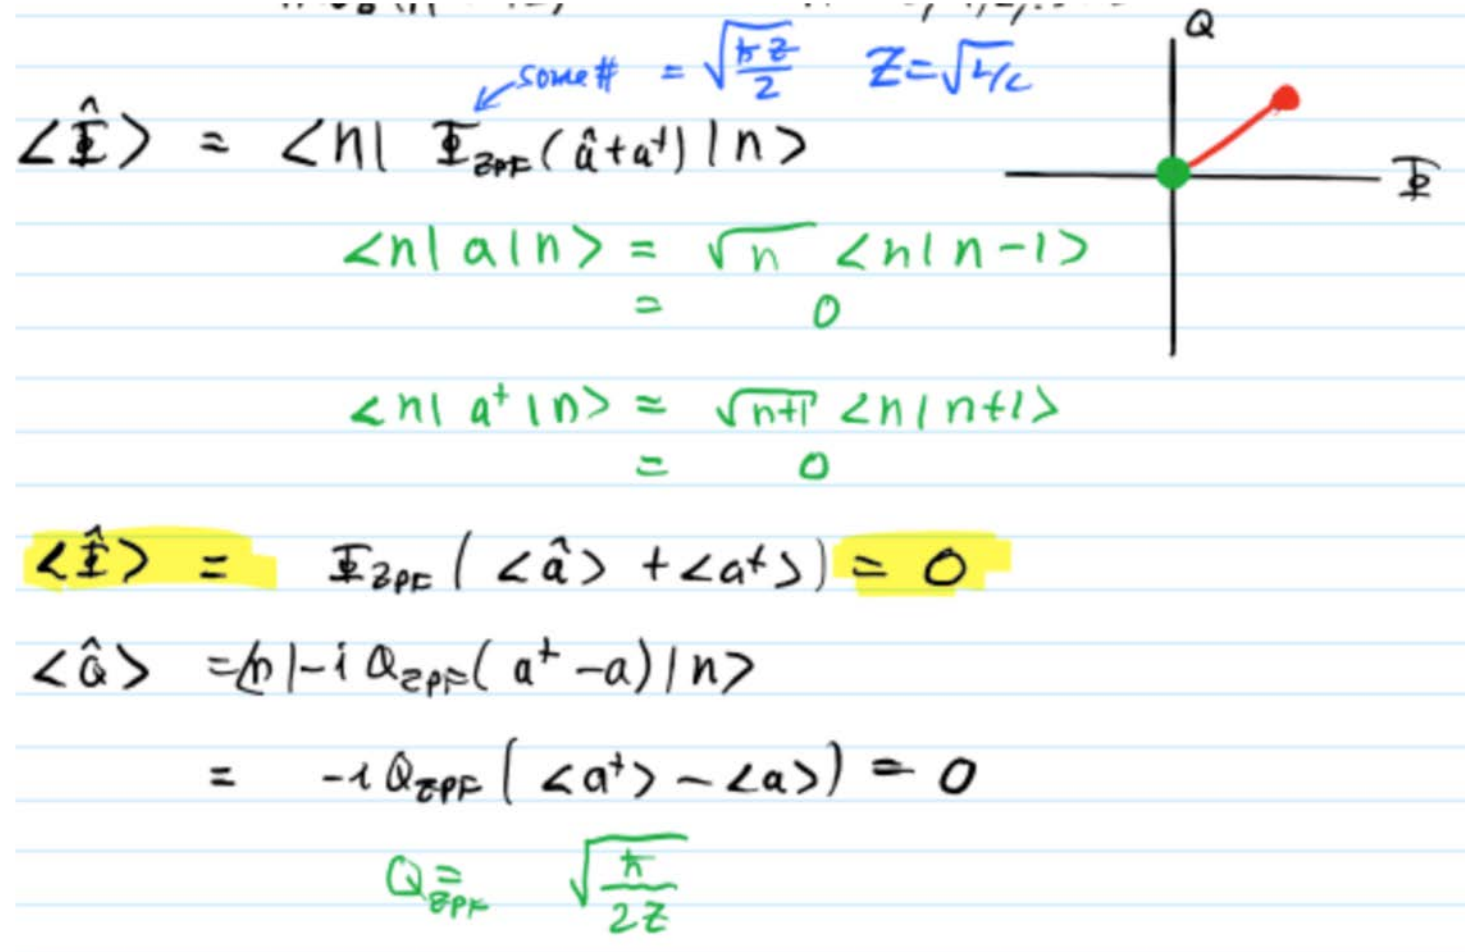 some# = √(ħZ/2) Z = √L/C
Q
<Φ̂> = <n| Φ_ZPF (â + a†) |n>
Φ
<n| a |n> = √n <n| n-1>
= 0
<n| a† |n> = √n+1 <n| n+1>
= 0
<Φ̂> = Φ_ZPF ( <â> + <a†> ) = 0
<Q̂> = <n| -i Q_ZPF ( a† - a ) |n>
= -i Q_ZPF ( <a†> - <a> ) = 0
Q_ZPF = √(ħ/2Z)